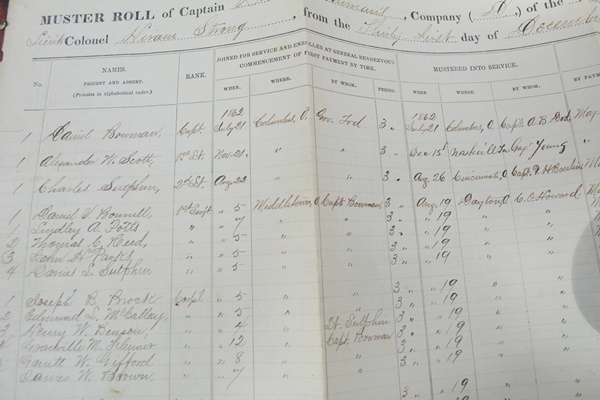 MUSTER ROLL of Captain Company ( ) of the
Lieut Colonel Hiram Strong , from the Thirty first day of December
No. NAMES. PRESENT AND ABSENT. (Privates in alphabetical order.) RANK. JOINED FOR SERVICE AND ENROLLED AT GENERAL RENDEZVOUS COMMENCEMENT OF FIRST PAYMENT BY TIME. MUSTERED INTO SERVICE.
WHEN. WHERE. BY WHOM. PERIOD. WHEN. WHERE. BY WHOM. BY PAY
1862 1862
1 Daniel Bowman, Capt. July 21 Columbus, O. Gov. Tod 3 " July 21 Columbus, O. Capt. A. B. Dod May
1 Alexander W. Scott, 1st Lt. Nov. 21 " " 3 " Dec 15t Nashville Tn Capt Young
1 Charles Sutphin, 2nd Lt. Aug. 22 " " 3 " Aug. 26 Cincinnati, O Capt.
1 David V. Bonnell, 1st Sergt " 5 Middletown, O Capt Bowman 3 " Aug. 19 Dayton, O C. O. Howard
1 Lindley A. Potts " 7 " " 3 " " 19 " "
2 Thomas C. Reed, " 5 " " 3 " " 19 " "
3 John H. Parks, " 5 " " 3 " " 19 " "
4 Daniel L. Sutphin " 5 " "
1 Joseph B. Brock Corpl " 5 " " 3 " " 19 " "
2 Edmund L. McCalley, " 5 " " 3 " " 19 " "
3 Henry W. Benson, " 4 " Lt. Sutphin 3 " " 19 " "
Granville M. " 12 " Capt. Bowman 3 " " 19 " "
Garrett W. Gifford " 8 " " 3 " " 19 " "
James W. Brown " 7 " "
3 " " 19 "